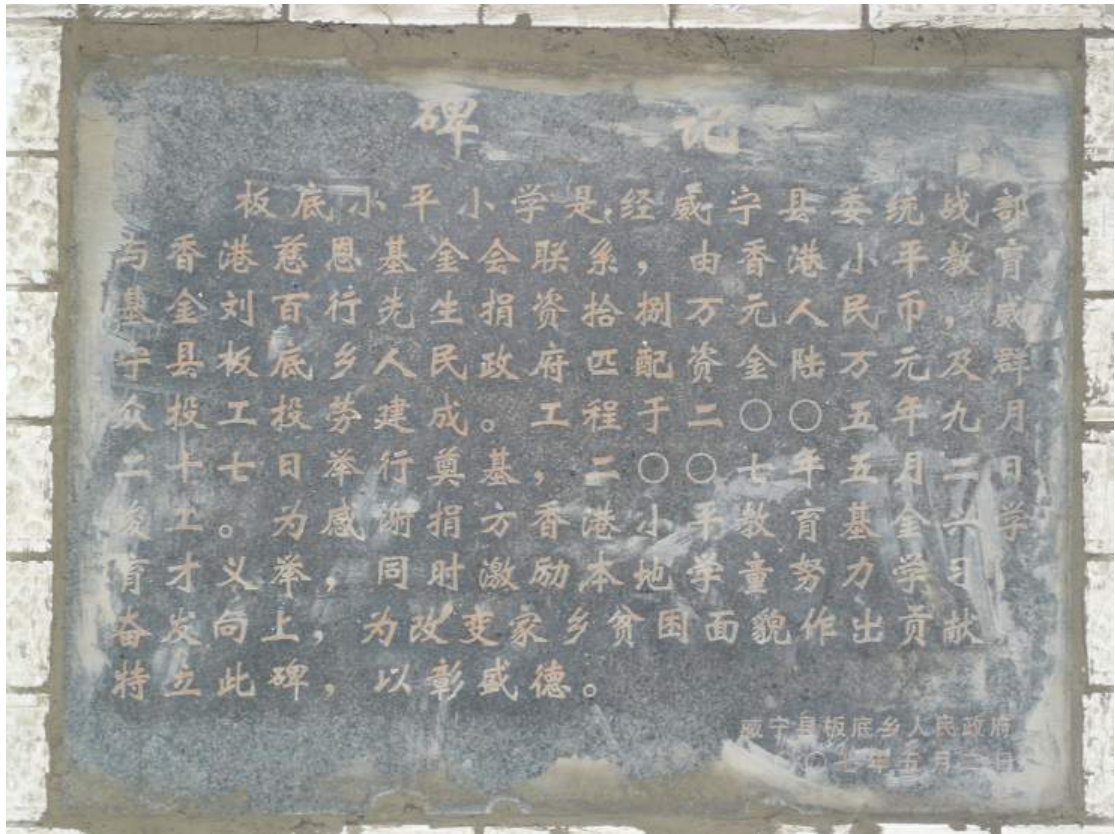 碑 记
板底小平小学是经威宁县委统战部
与香港慈恩基金会联系，由香港小平教育
基金刘百行先生捐资拾捌万元人民币，威
宁县板底乡人民政府匹配资金陆万元及群
众投工投劳建成。工程于二〇〇五年九月
二十七日举行奠基，二〇〇七年五月二日
竣工。为感谢捐方香港小平教育基金 学
育才义举，同时激励本地学童努力学习
奋发向上，为改变家乡贫困面貌作出贡献
特立此碑，以彰盛德。
威宁县板底乡人民政府
〇七年五月二日